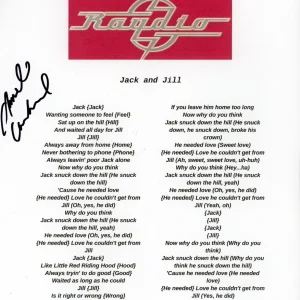 Raydio
Jack and Jill
Jack (Jack)
Wanting someone to feel (Feel)
Sat up on the hill (Hill)
And waited all day for Jill
Jill (Jill)
Always away from home (Home)
Never bothering to phone (Phone)
Always leavin' poor Jack alone
Now why do you think
Jack snuck down the hill (He snuck
down the hill)
'Cause he needed love
(He needed) Love he couldn't get from
Jill (Oh, yes, he did)
Why do you think
Jack snuck down the hill (He snuck
down the hill, yeah)
He needed love (Oh, yes, he did)
(He needed) Love he couldn't get from
Jill
Jack (Jack)
Like Little Red Riding Hood (Hood)
Always tryin' to do good (Good)
Waited as long as he could
Jill (Jill)
Is it right or wrong (Wrong)
If you leave him home too long
Now why do you think
Jack snuck down the hill (He snuck
down, he snuck down, broke his
crown)
He needed love (Sweet love)
(He needed) Love he couldn't get from
Jill (Ah, sweet, sweet love, uh-huh)
Why do you think (Hey, ha)
Jack snuck down the hill (He snuck
down the hill, yeah)
He needed love (Oh, yes, he did)
(He needed) Love he couldn't get from
Jill (Yeah, oh)
(Jack)
(Jill)
(Jack)
(Jill)
Now why do you think (Why do you
think)
Jack snuck down the hill (Why do you
think he snuck down the hill)
'Cause he needed love (He needed
love)
(He needed) Love he couldn't get from